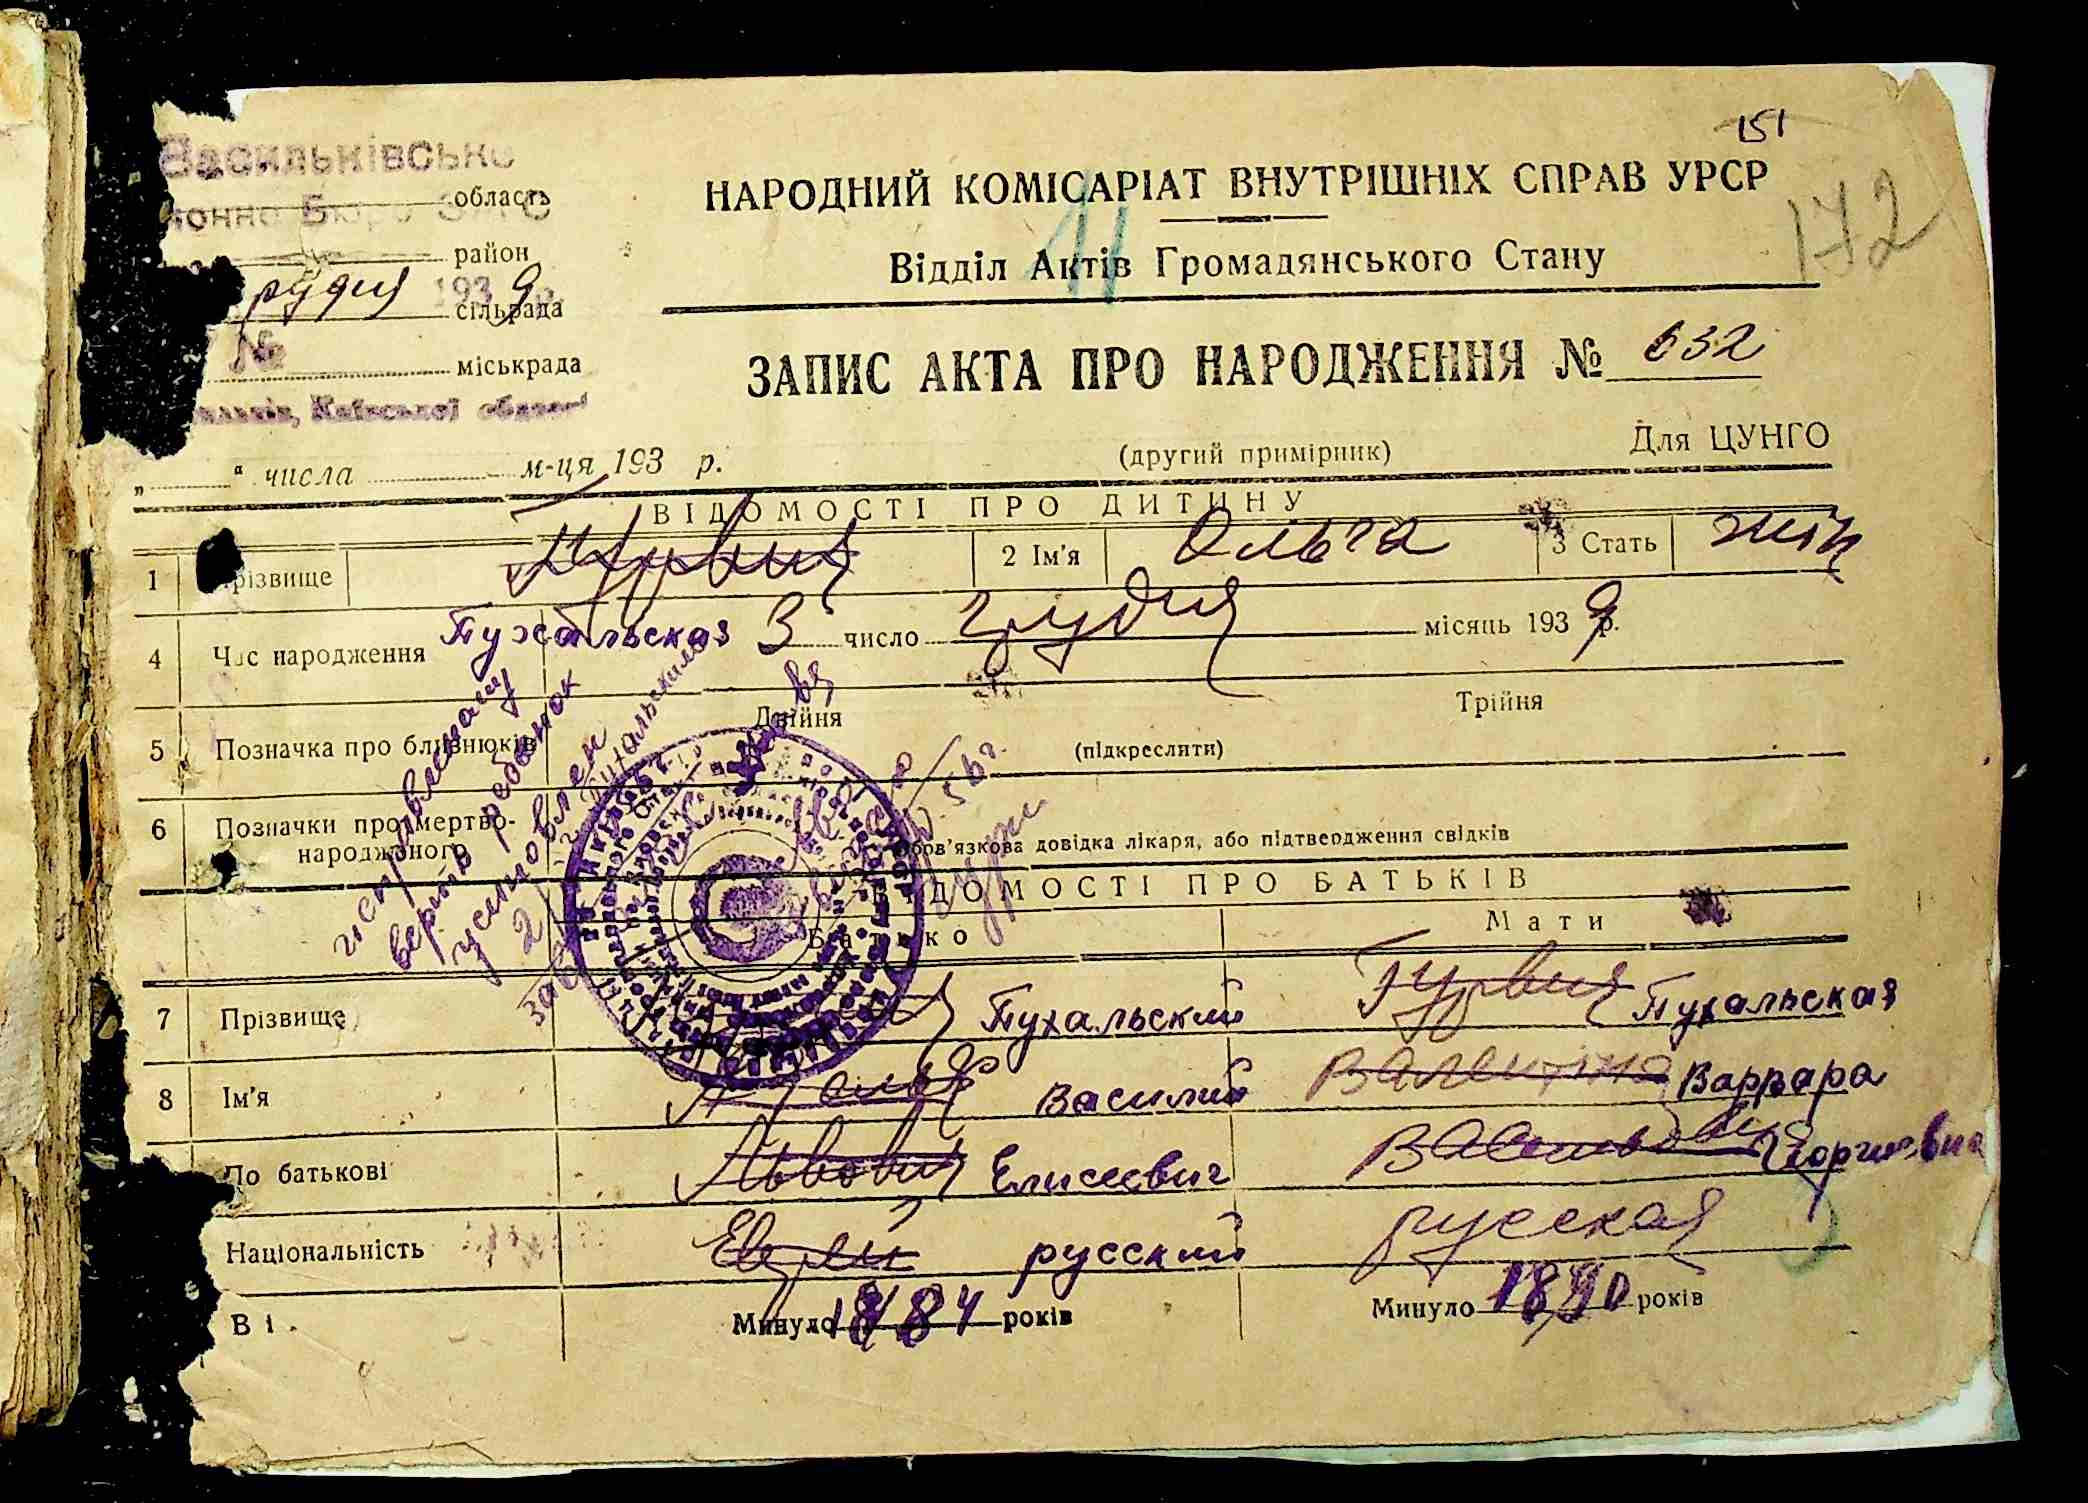 151
172
11
Васильківське
область
район
рудня 1939 р.
сільрада
№
міськрада
Київської
НАРОДНИЙ КОМІСАРІАТ ВНУТРІШНІХ СПРАВ УРСР
Відділ Актів Громадянського Стану
ЗАПИС АКТА ПРО НАРОДЖЕННЯ № 632
(другий примірник)
Для ЦУНГО
„ “ числа м-ця 193 р.
ВІДОМОСТІ ПРО ДИТИНУ
1 різвище Гурвич 2 Ім'я Ольга 3 Стать жін
Пухальская
4 Час народження 3 число грудня місяць 1939 р.
5 Позначка про близнюків Двійня (підкреслити) Трійня
6 Позначки про мертво-
народжоного
бов'язкова довідка лікаря, або підтвердження свідків
исправленому
верить ребенок
усыновлен
Пухальским
56 г.
ДОМОСТІ ПРО БАТЬКІВ
Батько Мати
7 Прізвище Пухальский Гурвич Пухальская
8 Ім'я Василий Валентина Варвара
По батькові Львович Елисеевич Георгиевна
Національність Еврей русский русская
Ві Минуло 1884 років Минуло 1890 років